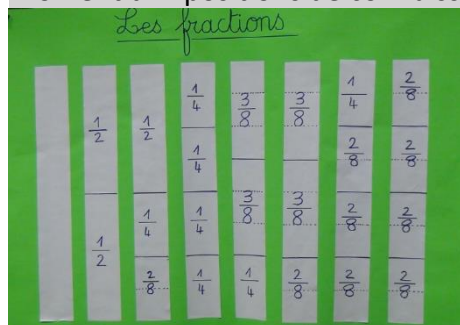 Les fractions
1/2
1/2
1/2
1/4
2/8
1/4
1/4
1/4
1/4
3/8
3/8
1/4
3/8
3/8
2/8
1/4
2/8
2/8
2/8
2/8
2/8
2/8
2/8